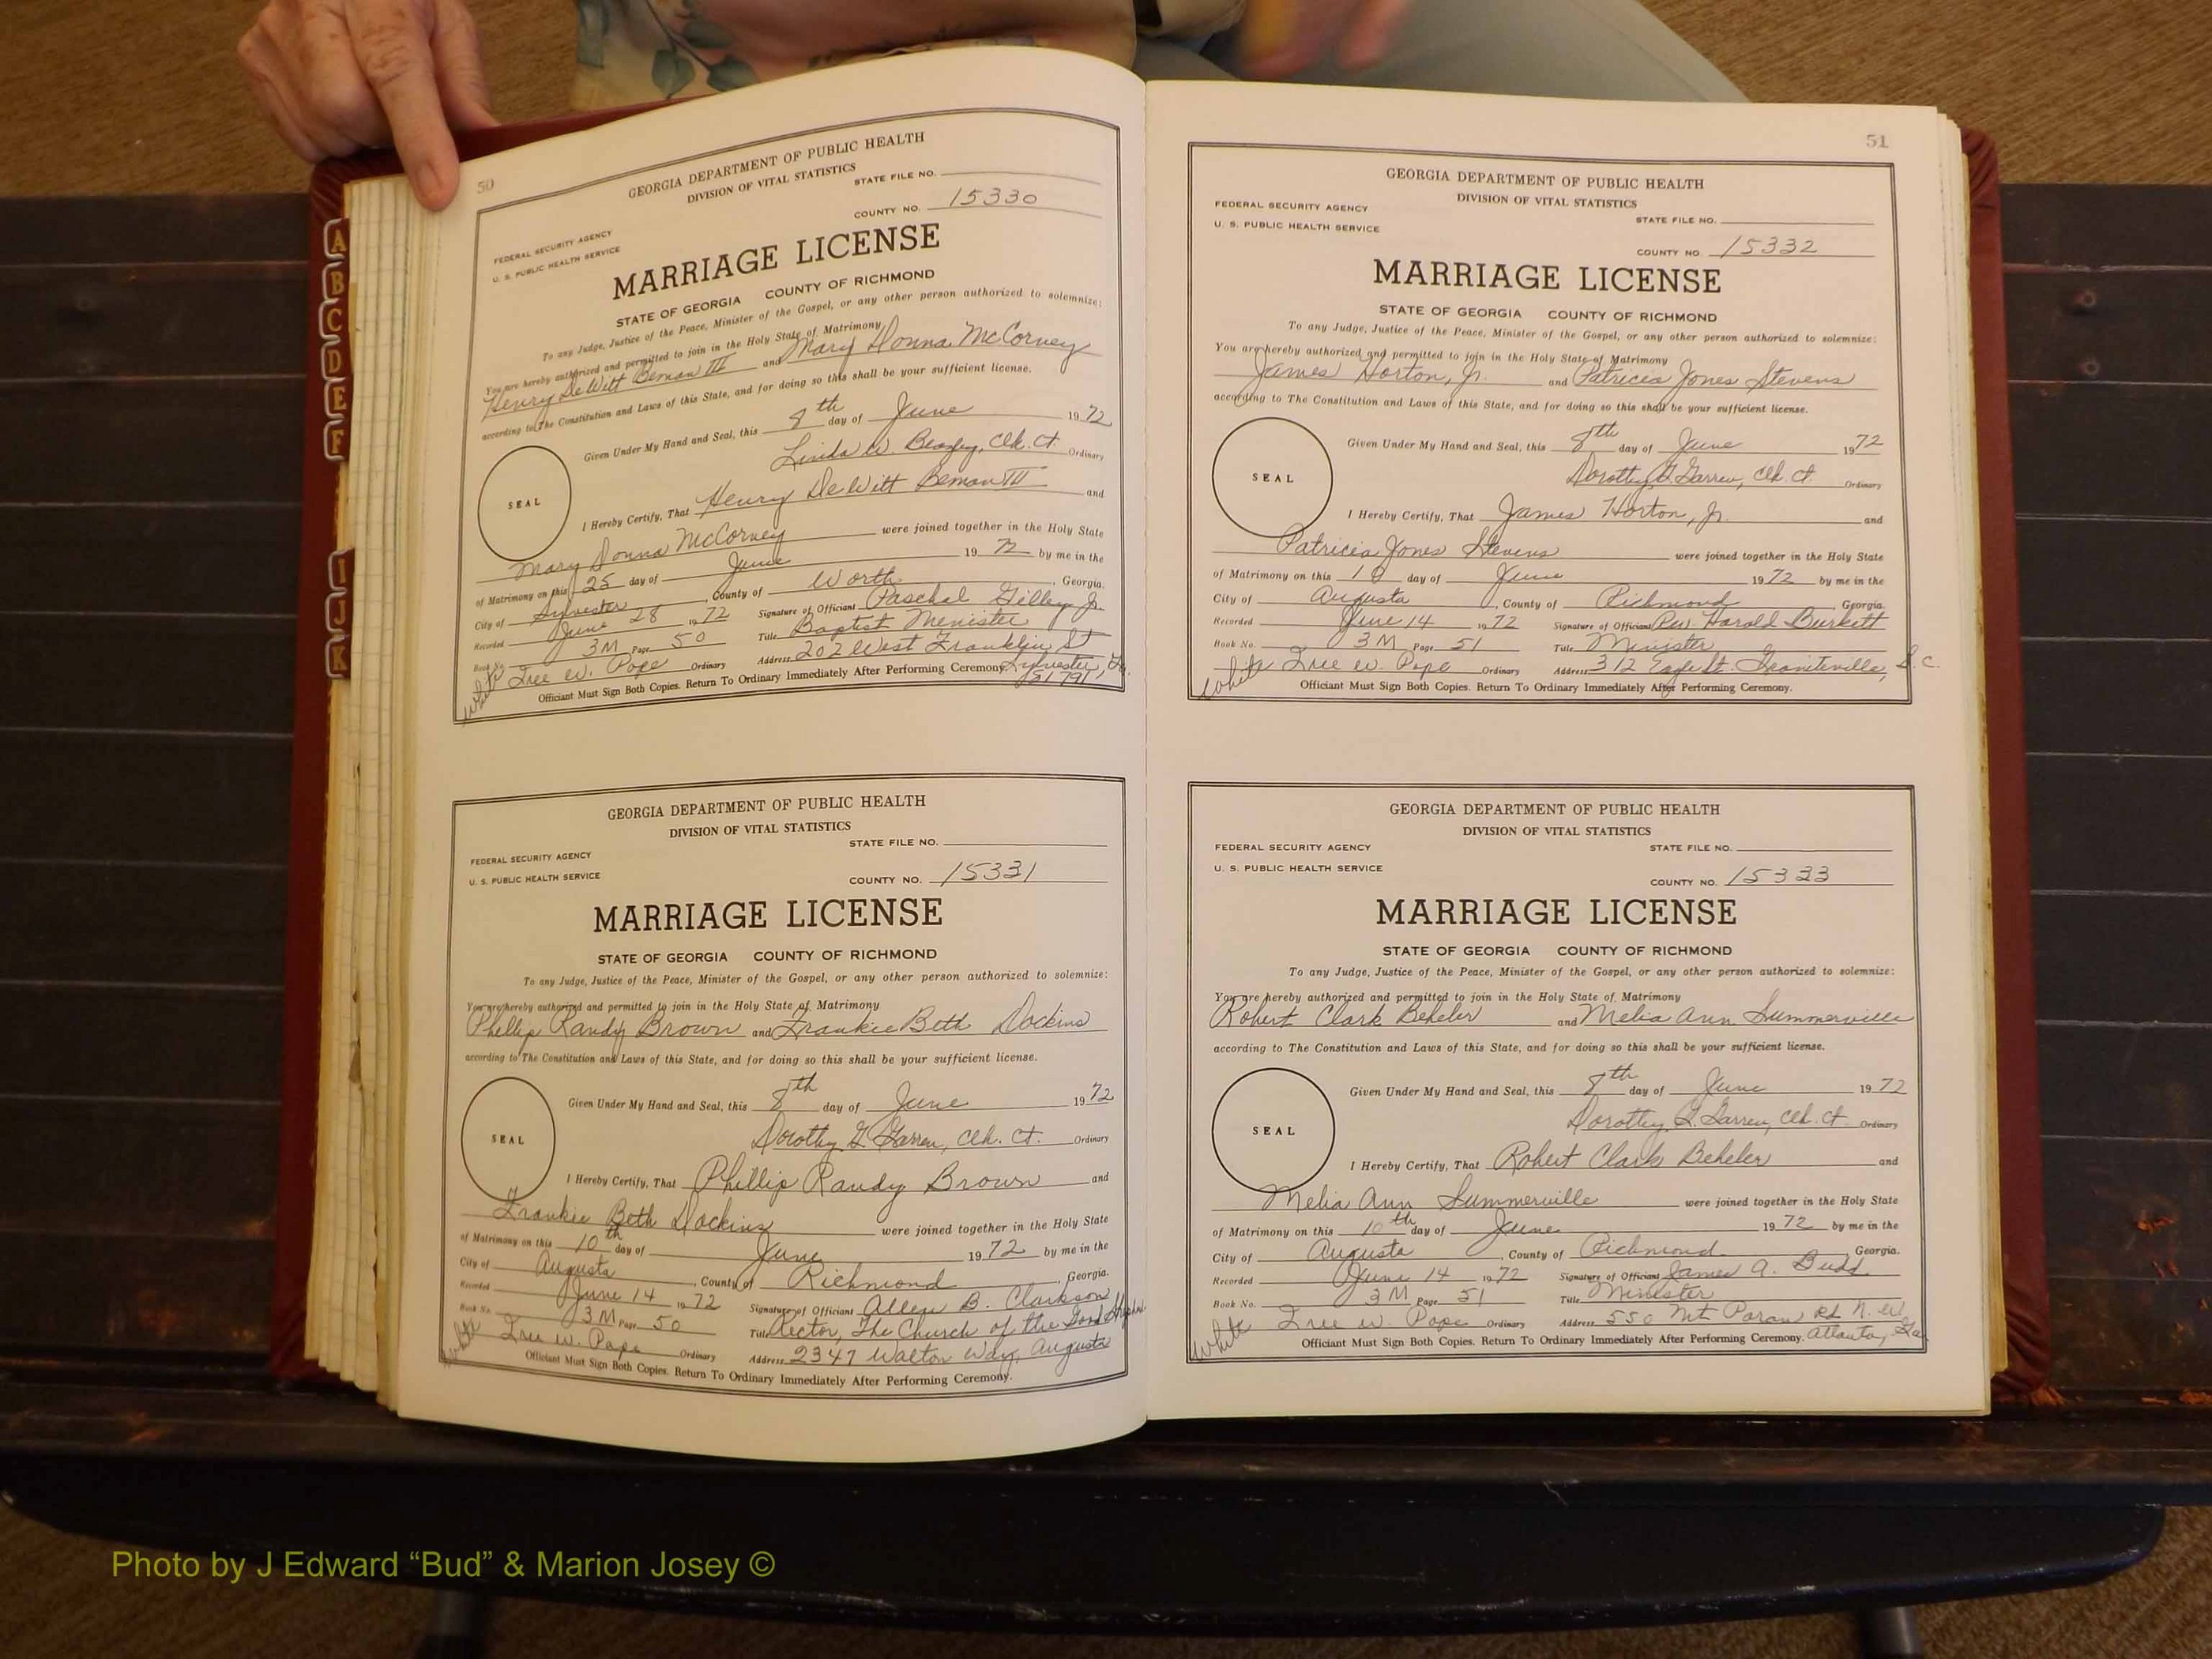 A
B
C
D
E
F
I
J
K
50
GEORGIA DEPARTMENT OF PUBLIC HEALTH
DIVISION OF VITAL STATISTICS
STATE FILE NO.
COUNTY NO. 15330
FEDERAL SECURITY AGENCY
U. S. PUBLIC HEALTH SERVICE
MARRIAGE LICENSE
STATE OF GEORGIA COUNTY OF RICHMOND
To any Judge, Justice of the Peace, Minister of the Gospel, or any other person authorized to solemnize:
You are hereby authorized and permitted to join in the Holy State of Matrimony
Henry DeWitt Beman III and Mary Donna McCorvey
according to The Constitution and Laws of this State, and for doing so this shall be your sufficient license.
Given Under My Hand and Seal, this 8th day of June 1972
Linda W. Beazley, Clk. Ct. Ordinary
SEAL
I Hereby Certify, That Henry DeWitt Beman III and
Mary Donna McCorvey were joined together in the Holy State
of Matrimony on this 25 day of June 1972 by me in the
City of Sylvester, County of Worth, Georgia.
Recorded June 28 1972 Signature of Officiant Paschal Gilley Jr.
Book No. 3M Page 50 Title Baptist Menister
White Ordinary Address 202 West Franklin St
Officiant Must Sign Both Copies. Return To Ordinary Immediately After Performing Ceremony. Sylvester, Ga.
GEORGIA DEPARTMENT OF PUBLIC HEALTH
DIVISION OF VITAL STATISTICS
STATE FILE NO.
FEDERAL SECURITY AGENCY
U. S. PUBLIC HEALTH SERVICE
COUNTY NO. 15331
MARRIAGE LICENSE
STATE OF GEORGIA COUNTY OF RICHMOND
To any Judge, Justice of the Peace, Minister of the Gospel, or any other person authorized to solemnize:
You are hereby authorized and permitted to join in the Holy State of Matrimony
Phillip Randy Brown and Frankie Beth Dockins
according to The Constitution and Laws of this State, and for doing so this shall be your sufficient license.
Given Under My Hand and Seal, this 8th day of June 1972
Dorothy G. Garren, Clk. Ct. Ordinary
SEAL
I Hereby Certify, That Phillip Randy Brown and
Frankie Beth Dockins were joined together in the Holy State
of Matrimony on this 10th day of June 1972 by me in the
City of Augusta, County of Richmond, Georgia.
Recorded June 14 1972 Signature of Officiant Allen B. Clarkson
Book No. 3M Page 50 Title Rector, The Church of the Good Shepherd
White W. Pope Ordinary Address 2347 Walton Way, Augusta
Officiant Must Sign Both Copies. Return To Ordinary Immediately After Performing Ceremony.
51
GEORGIA DEPARTMENT OF PUBLIC HEALTH
DIVISION OF VITAL STATISTICS
FEDERAL SECURITY AGENCY
U. S. PUBLIC HEALTH SERVICE
STATE FILE NO.
COUNTY NO. 15332
MARRIAGE LICENSE
STATE OF GEORGIA COUNTY OF RICHMOND
To any Judge, Justice of the Peace, Minister of the Gospel, or any other person authorized to solemnize:
You are hereby authorized and permitted to join in the Holy State of Matrimony
James Horton, Jr. and Patricia Jones Stevens
according to The Constitution and Laws of this State, and for doing so this shall be your sufficient license.
Given Under My Hand and Seal, this 8th day of June 1972
Dorothy G. Garren, Clk. Ct. Ordinary
SEAL
I Hereby Certify, That James Horton, Jr. and
Patricia Jones Stevens were joined together in the Holy State
of Matrimony on this 10 day of June 1972 by me in the
City of Augusta, County of Richmond, Georgia.
Recorded June 14 1972 Signature of Officiant Rev Harold Burkett
Book No. 3M Page 51 Title Minister
White W. Pope Ordinary Address 312 St. Graniteville, S.C.
Officiant Must Sign Both Copies. Return To Ordinary Immediately After Performing Ceremony.
GEORGIA DEPARTMENT OF PUBLIC HEALTH
DIVISION OF VITAL STATISTICS
FEDERAL SECURITY AGENCY
STATE FILE NO.
U. S. PUBLIC HEALTH SERVICE
COUNTY NO. 15333
MARRIAGE LICENSE
STATE OF GEORGIA COUNTY OF RICHMOND
To any Judge, Justice of the Peace, Minister of the Gospel, or any other person authorized to solemnize:
You are hereby authorized and permitted to join in the Holy State of Matrimony
Robert Clark Beheler and Melia Ann Summerville
according to The Constitution and Laws of this State, and for doing so this shall be your sufficient license.
Given Under My Hand and Seal, this 8th day of June 1972
Dorothy G. Garren, Clk. Ct. Ordinary
SEAL
I Hereby Certify, That Robert Clark Beheler and
Melia Ann Summerville were joined together in the Holy State
of Matrimony on this 10th day of June 1972 by me in the
City of Augusta, County of Richmond, Georgia.
Recorded June 14 1972 Signature of Officiant James A. Budd
Book No. 3M Page 51 Title Minister
White W. Pope Ordinary Address 550 Mt Paran Rd N.W
Officiant Must Sign Both Copies. Return To Ordinary Immediately After Performing Ceremony. Atlanta, Ga
Photo by J Edward “Bud” & Marion Josey ©